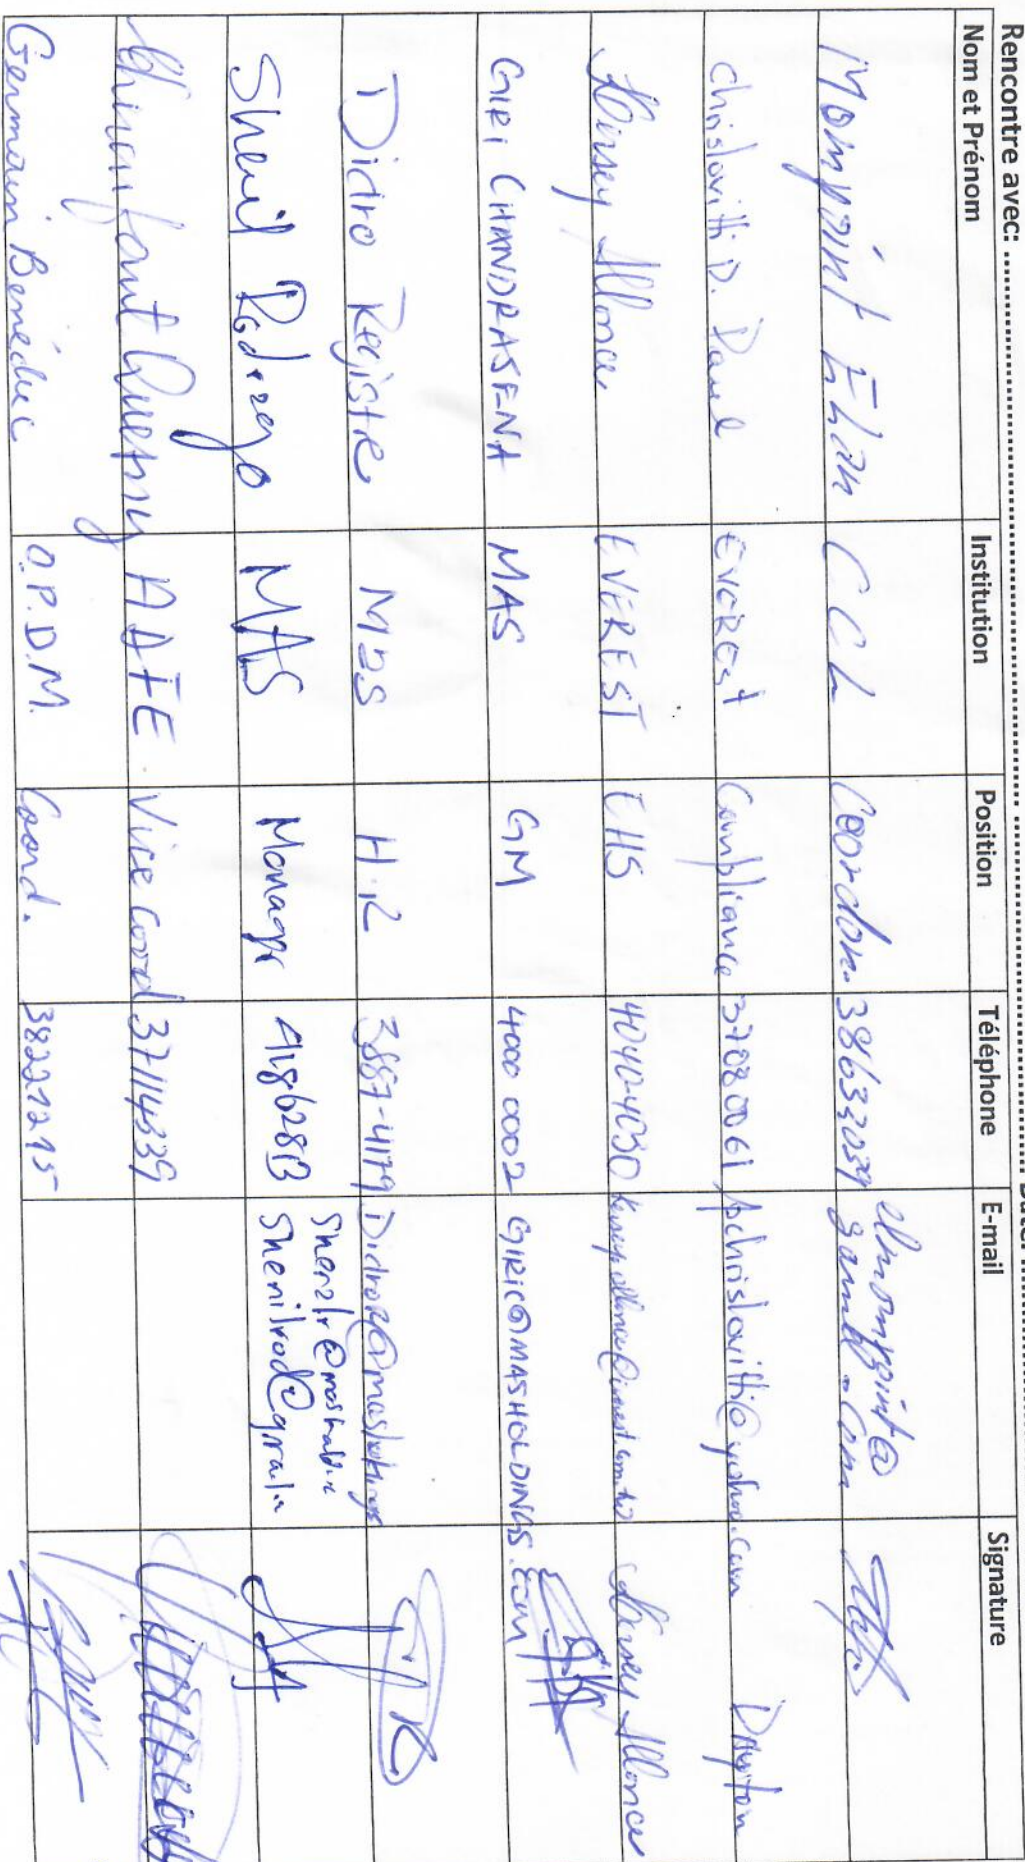 Rencontre avec: ........................................................ Date: ........................
Nom et Prénom Institution Position Téléphone E-mail Signature
Mompoint Elan CCL Coordon. 38633039 elmompoint@
gamil.com
chislovitti D. Paul EVEREST Compliance 37080061 pchrislovitti@yahoo.com
Kinsey Allonce EVEREST EHS 4040-4030 Kinsey Allonce
GIRI CHANDRASENA MAS GM 4000 0002 GIRIC@MASHOLDINGS.com
Didro Registre MDS H.R 3887-4179 DidroR@masholdings
Shenil Rodrigo MAS Manager
Shenilr@masholdin
Shenilrod@gmail
AAFE Vice Coord 37114339
Germain Bénédic O.P.D.M. Coord. 38221215